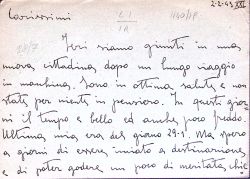 2-2-43 XXI
Carissimi
Ieri siamo giunti in una
nuova cittadina dopo un lungo viaggio
in macchina. Sono in ottima salute e non
state per niente in pensiero. In questi gior
ni il tempo è bello ed anche poco freddo.
Ultima mia era del giorno 29-1. Ma spero
a giorni di essere inviato a destinazione
e di poter godere un poco di meritata chie